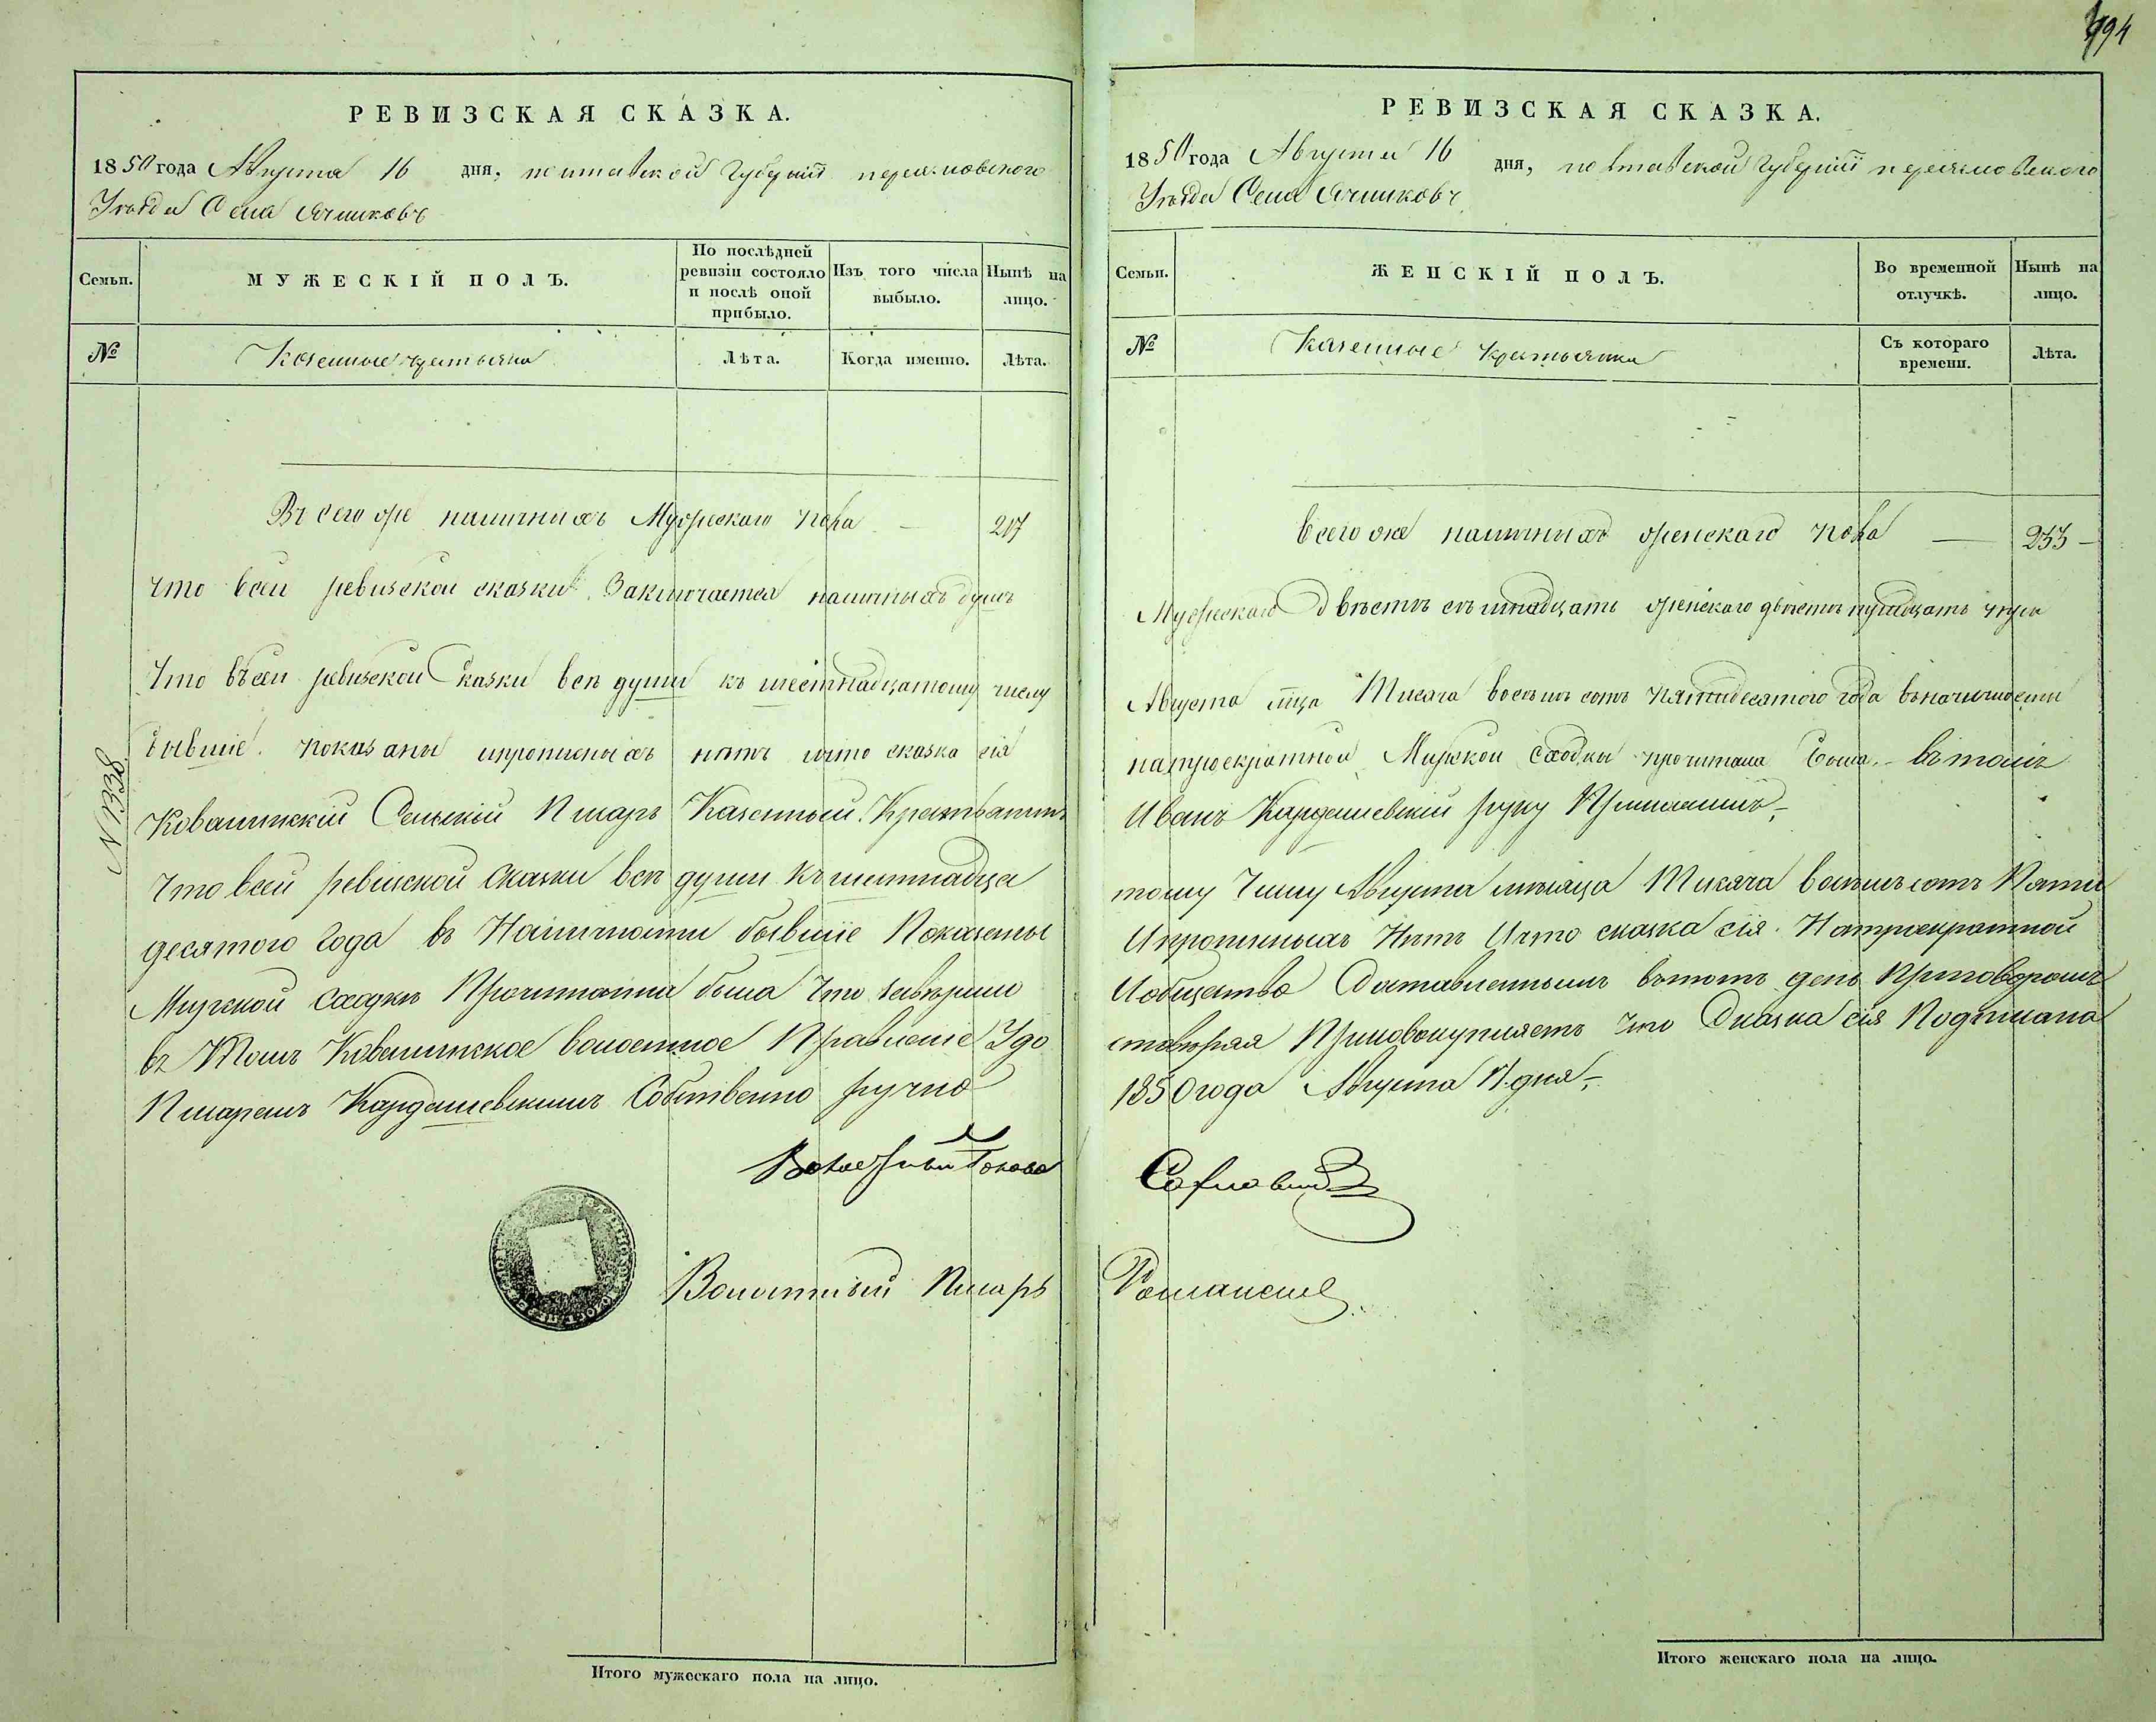 494
РЕВИЗСКАЯ СКАЗКА.
1850 года Августа 16 дня, полтавской Губерніи переяславского
Уѣзда Села Ячниковъ
Семьи.
МУЖЕСКІЙ ПОЛЪ.
По послѣдней
ревизіи состояло
и послѣ оной
прибыло.
Изъ того числа
выбыло.
Нынѣ на
лицо.
№
Казенные крестьяна
Лѣта.
Когда именно.
Лѣта.
Въсегоже наличнихъ Мужескаго пола — 217
что всеи ревизской сказки Заключается наличныхъ душъ
Что въсеи ревизской Сказки всѣ души къ шестнадцатому числу
бывшіе показаны ипрописныхъ нѣтъ ичто сказка сія
Ковалинскій Сельскій Писарь Казенный Крестьянинъ
Что всеи ревизской Сказки всѣ души Къшестнадца
десятого Года въ Наличности бывшіе Показаты
Мирской Сходки Прочитанна была Что
въ Томъ Ковалинское волостное Правленіе Удо
Писаремъ Кардашевскимъ Собственно ручно
N 1338
Волостный Голова
Волостный Писарь
Итого мужескаго пола на лицо.
РЕВИЗСКАЯ СКАЗКА.
1850 года Августа 16 дня, полтавской Губерніи переяславского
Уѣзда Села Ячниковъ
Семьи.
ЖЕНСКІЙ ПОЛЪ.
Во временной
отлучкѣ.
Нынѣ на
лицо.
№
Казенные крестьянки
Съ котораго
времени.
Лѣта.
всегоже наличнихъ женскаго пола — 253 —
Мужескаго Двѣстѣ сѣмнадцать женскаго двѣстѣ
Августа мца Тисяча восѣмъ сотъ пятидесятого года вьналичности
натроекратной Мирской сходки прочитана Была. въ томъ
Иванъ Кардашевскій руку Приложилъ
тому Числу Августа мѣсяца Тисяча восѣмъ сотъ Пяти
Ипрописныхъ Нѣтъ Ичто сказка сія Натроекратной
Иобщество Составленнымъ вьтотъ день Приговоромъ
стовѣряя Присовокупляетъ Что Сказка сія Подписана
1850 года Августа дня
Романенко
Итого женскаго пола на лицо.